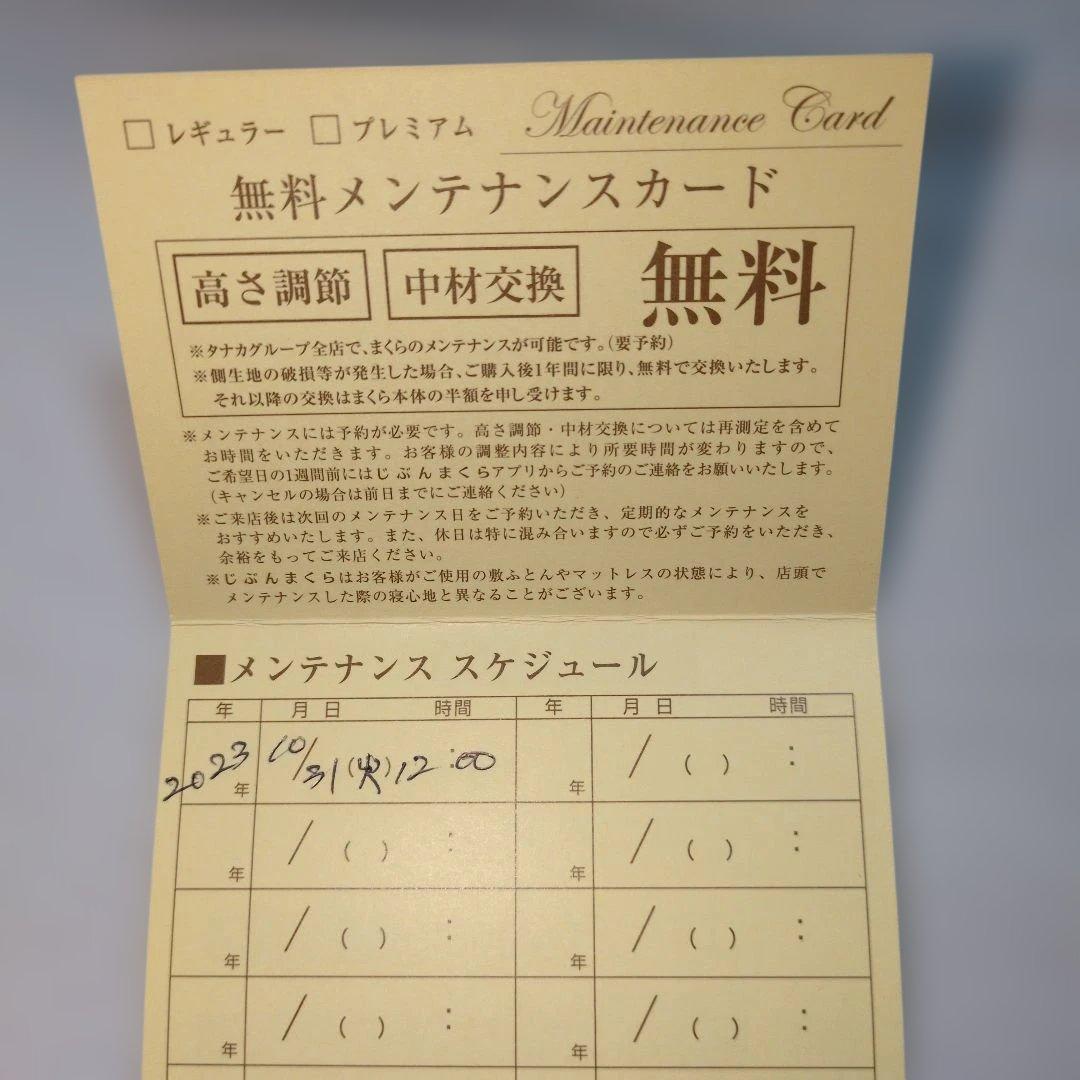 □ レギュラー □ プレミアム Maintenance Card
無料メンテナンスカード
高さ調節 中材交換 無料
※タナカグループ全店で、まくらのメンテナンスが可能です。(要予約)
※側生地の破損等が発生した場合、ご購入後1年間に限り、無料で交換いたします。
それ以降の交換はまくら本体の半額を申し受けます。
※メンテナンスには予約が必要です。高さ調節・中材交換については再測定を含めて
お時間をいただきます。お客様の調整内容により所要時間が変わりますので、
ご希望日の1週間前にはじぶんまくらアプリからご予約のご連絡をお願いいたします。
(キャンセルの場合は前日までにご連絡ください)
※ご来店後は次回のメンテナンス日をご予約いただき、定期的なメンテナンスを
おすすめいたします。また、休日は特に混み合いますので必ずご予約をいただき、
余裕をもってご来店ください。
※じぶんまくらはお客様がご使用の敷ふとんやマットレスの状態により、店頭で
メンテナンスした際の寝心地と異なることがございます。
■メンテナンス スケジュール
年 月 日 時間 年 月 日 時間
2023年 10/31(火)12:00 年 / ( ) :
年 / ( ) : 年 / ( ) :
年 / ( ) : 年 / ( ) :
年 / ( ) : 年 / ( ) :